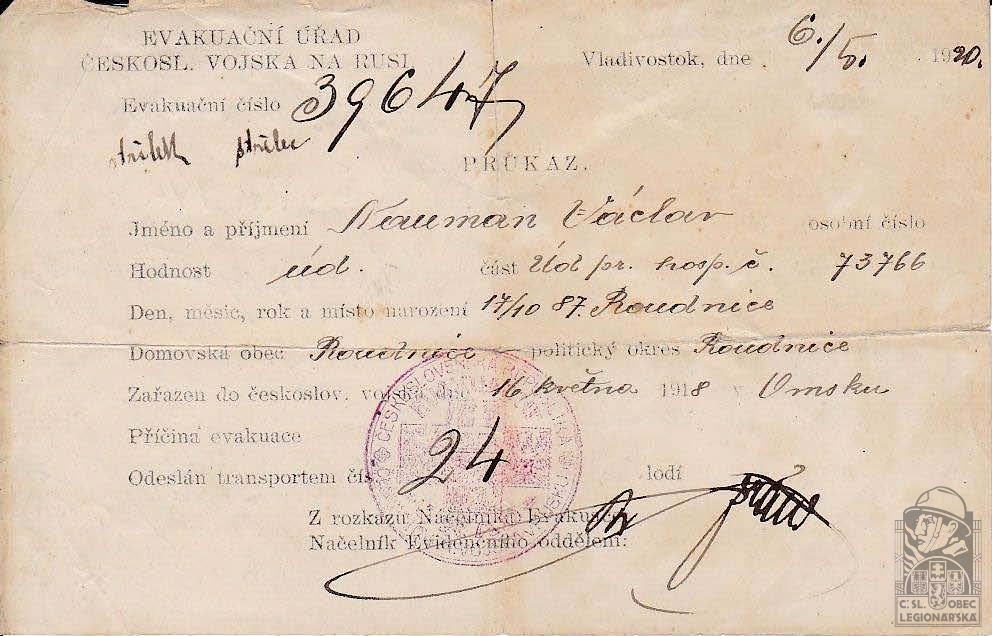 EVAKUAČNÍ ÚŘAD
ČESKOSL. VOJSKA NA RUSI
Vladivostok, dne 6./5. 1920.
Evakuační číslo 39647
střelec
PRŮKAZ.
Jméno a příjmení Nauman Václav osobní číslo
Hodnost úd. část Úd pr. hosp. č. 73766
Den, měsíc, rok a místo narození 17/10 87. Roudnice
Domovská obec Roudnice politický okres Roudnice
Zařazen do českoslov. vojska dne 16 května 1918 v Omsku
Příčina evakuace
Odeslán transportem čís. 24 lodí
Z rozkazu Náčelníka Evakuač
Náčelník Evidenčního oddělení:
Č. SL. OBEC
LEGIONÁŘSKÁ